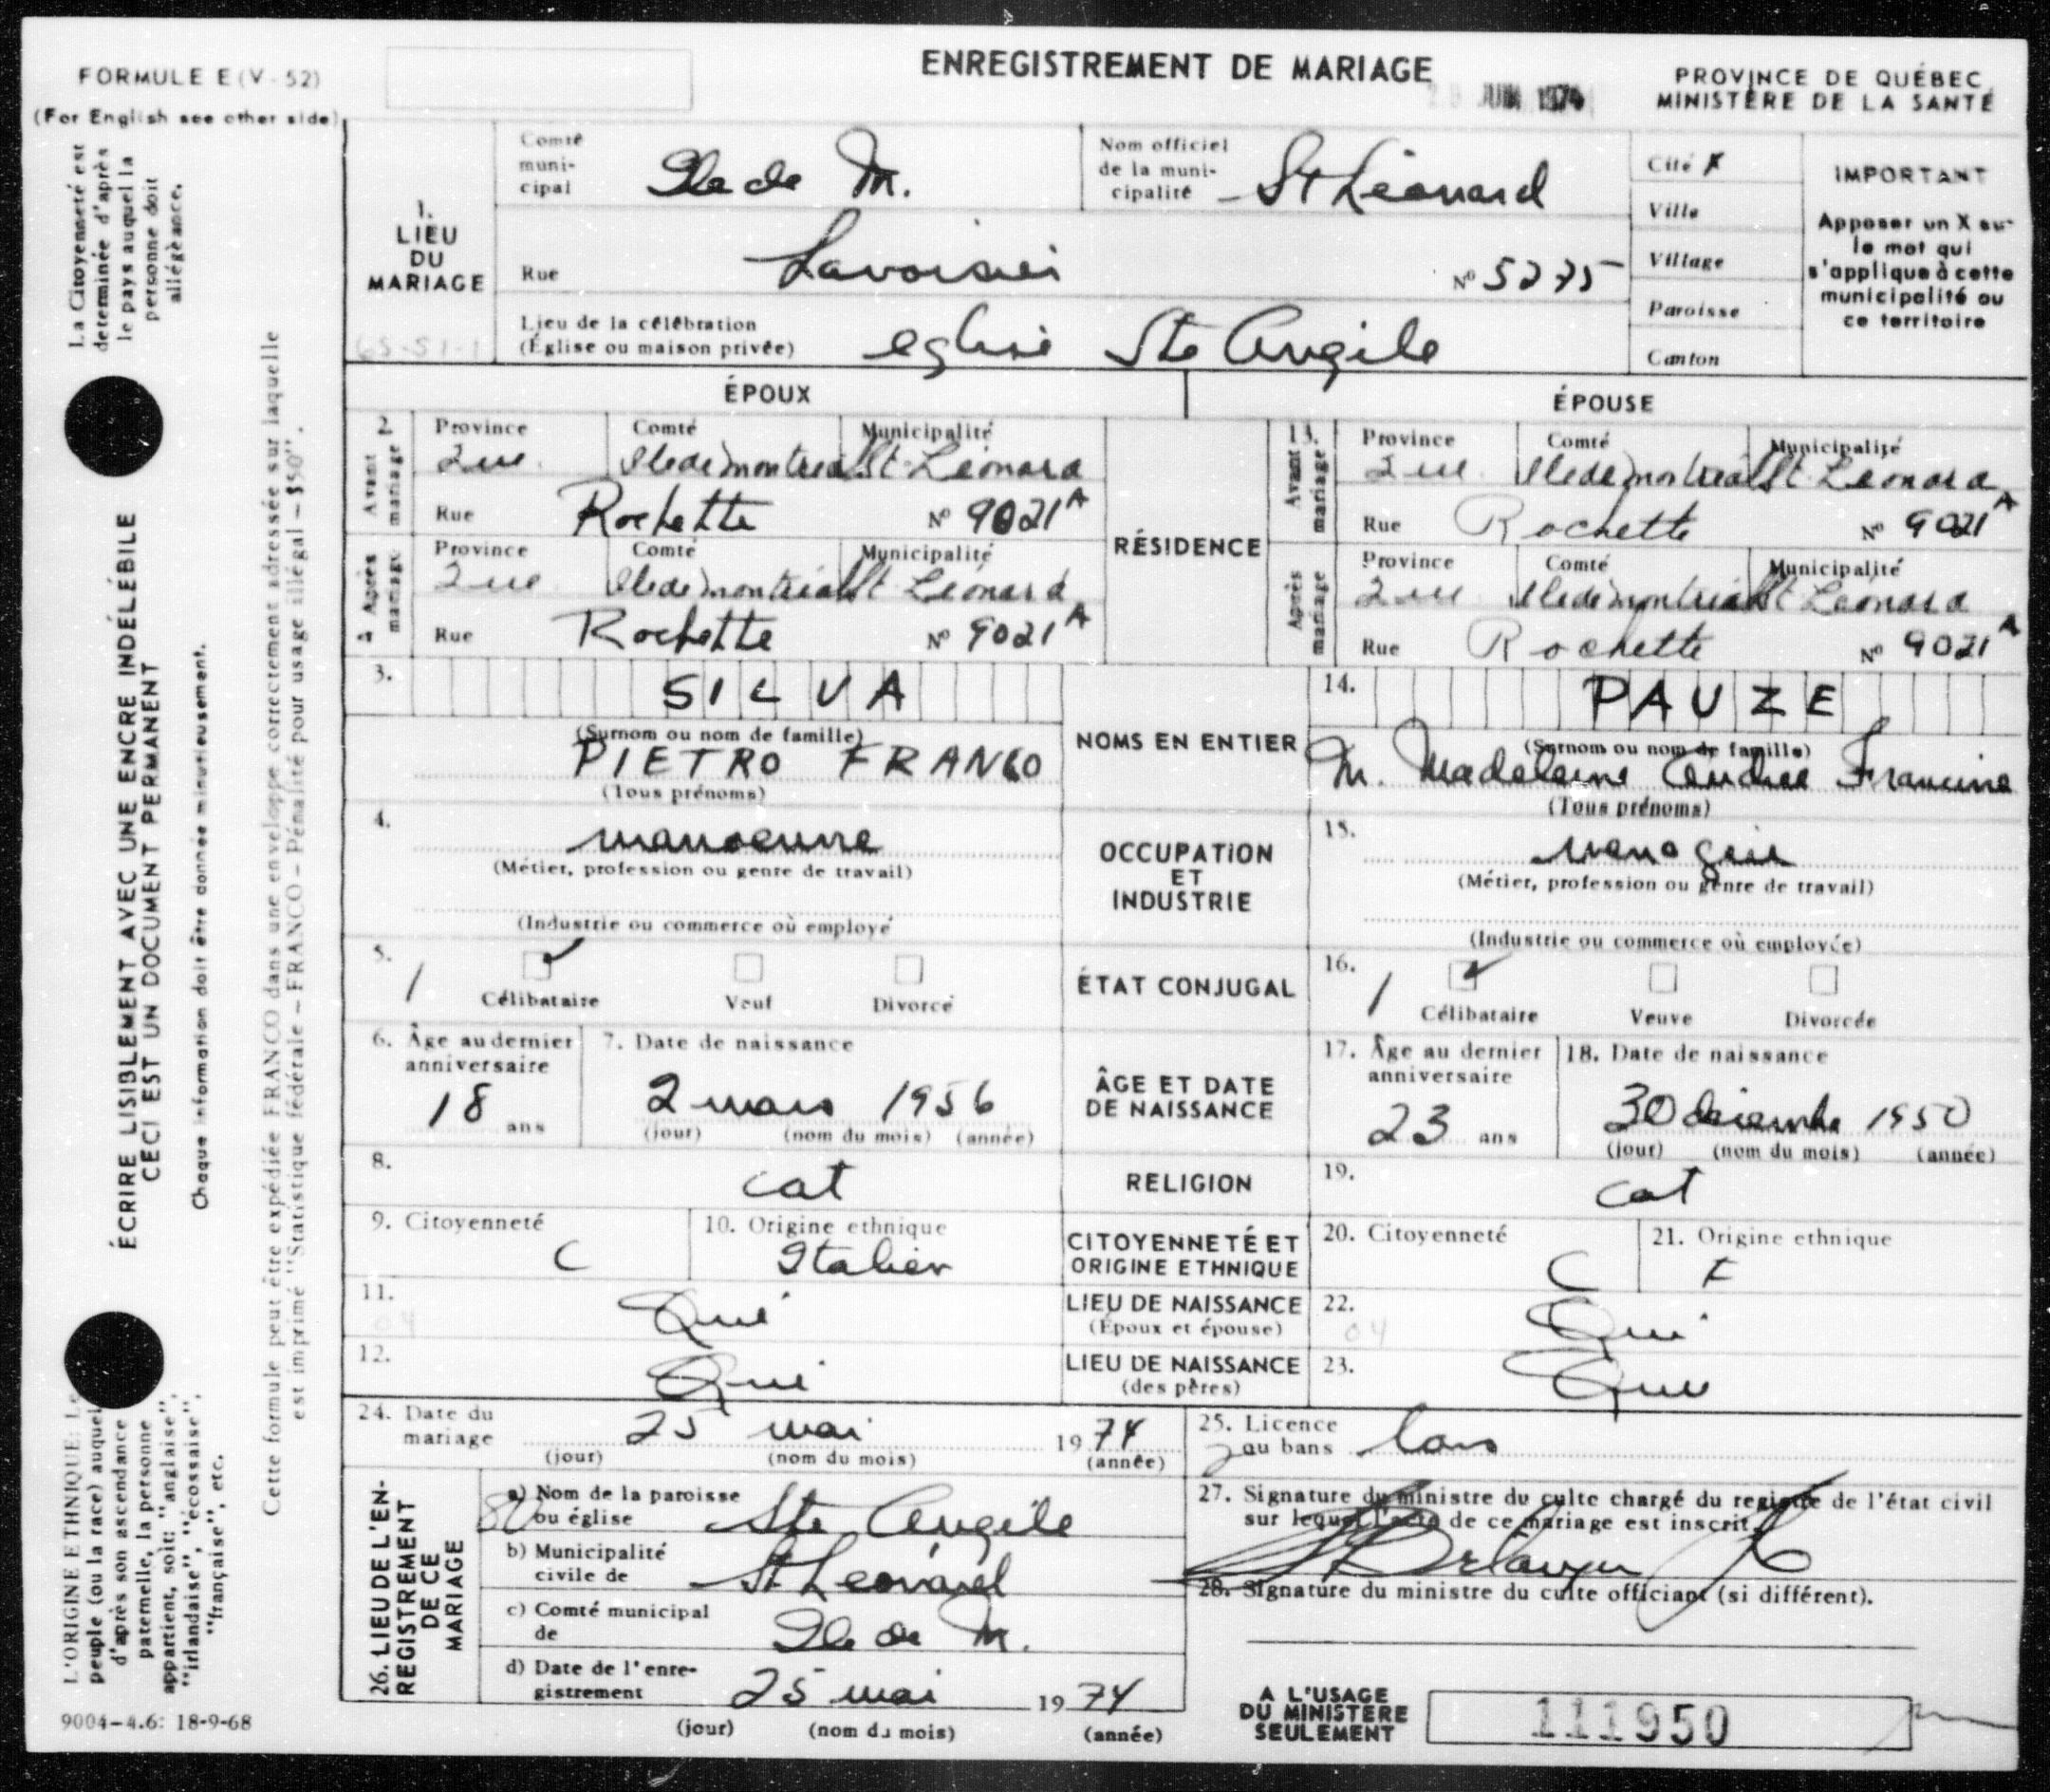 FORMULE E (V - 52)
(For English see other side)
ENREGISTREMENT DE MARIAGE
JUIN 1974
PROVINCE DE QUÉBEC
MINISTÈRE DE LA SANTÉ
La Citoyenneté est
determinée d'après
le pays auquel la
personne doit
allégeance.
ÉCRIRE LISIBLEMENT AVEC UNE ENCRE INDÉLÉBILE
CECI EST UN DOCUMENT PERMANENT
Chaque information doit être donnée minutieusement.
Cette formule peut être expédiée FRANCO dans une enveloppe correctement adressée sur laquelle
est imprimé "Statistique fédérale – FRANCO – Pénalité pour usage illégal – $50".
L'ORIGINE ETHNIQUE: Le
peuple (ou la race) auquel
d'après son ascendance
paternelle, la personne
appartient, soit: "anglaise",
"irlandaise", "écossaise",
"française", etc.
9004-4.6: 18-9-68
1.
LIEU
DU
MARIAGE
65-51-1
Comté
muni-
cipal
Ile de M.
Nom officiel
de la muni-
cipalité
St Léonard
Rue Lavoisier Nº 5275
Lieu de la célébration
(Église ou maison privée)
eglise Ste Angèle
Cité X
Ville
Village
Paroisse
Canton
IMPORTANT
Apposer un X sur
le mot qui
s'applique à cette
municipalité ou
ce territoire
ÉPOUX
ÉPOUSE
2. Avant mariage
Province Comté Municipalité
Que. Ile de Montreal St Léonard
Rue Rochette Nº 9021A
Après mariage
Province Comté Municipalité
Que Ile de Montréal St Léonard
Rue Rochette Nº 9021A
RÉSIDENCE
13. Avant mariage
Province Comté Municipalité
Que. Ile de Montreal St Léonard
Rue Rochette Nº 9021A
Après mariage
Province Comté Municipalité
Que Ile de Montreal St Léonard
Rue Rochette Nº 9021A
3. SILVA
(Surnom ou nom de famille)
PIETRO FRANCO
(Tous prénoms)
NOMS EN ENTIER
14. PAUZE
(Surnom ou nom de famille)
M. Madeleine Andrée Francine
(Tous prénoms)
4. manoeuvre
(Métier, profession ou genre de travail)
(Industrie ou commerce où employé
OCCUPATION
ET
INDUSTRIE
15. menagère
(Métier, profession ou genre de travail)
(Industrie ou commerce où employée)
5. 1 ✓
Célibataire Veuf Divorcé
ÉTAT CONJUGAL
16. 1 ✓
Célibataire Veuve Divorcée
6. Âge au dernier
anniversaire
18 ans
7. Date de naissance
2 mars 1956
(jour) (nom du mois) (année)
ÂGE ET DATE
DE NAISSANCE
17. Âge au dernier
anniversaire
23 ans
18. Date de naissance
30 décembre 1950
(jour) (nom du mois) (année)
8. cat
RELIGION
19. cat
9. Citoyenneté
C
10. Origine ethnique
Italien
CITOYENNETÉ ET
ORIGINE ETHNIQUE
20. Citoyenneté
C
21. Origine ethnique
F
11. Qué
04
LIEU DE NAISSANCE
(Époux et épouse)
22. Qué
04
12. Qué
LIEU DE NAISSANCE
(des pères)
23. Qué
24. Date du
mariage
25 mai 1974
(jour) (nom du mois) (année)
25. Licence
ou bans
bans
26. LIEU DE L'EN-
REGISTREMENT
DE CE
MARIAGE
a) Nom de la paroisse
ou église
Ste Angèle
b) Municipalité
civile de
St Léonard
c) Comté municipal
de
Ile de M.
d) Date de l'enre-
gistrement
25 mai 1974
(jour) (nom du mois) (année)
27. Signature du ministre du culte chargé du registre de l'état civil
sur lequel l'acte de ce mariage est inscrit.
28. Signature du ministre du culte officiant (si différent).
A L'USAGE
DU MINISTÈRE
SEULEMENT
111950